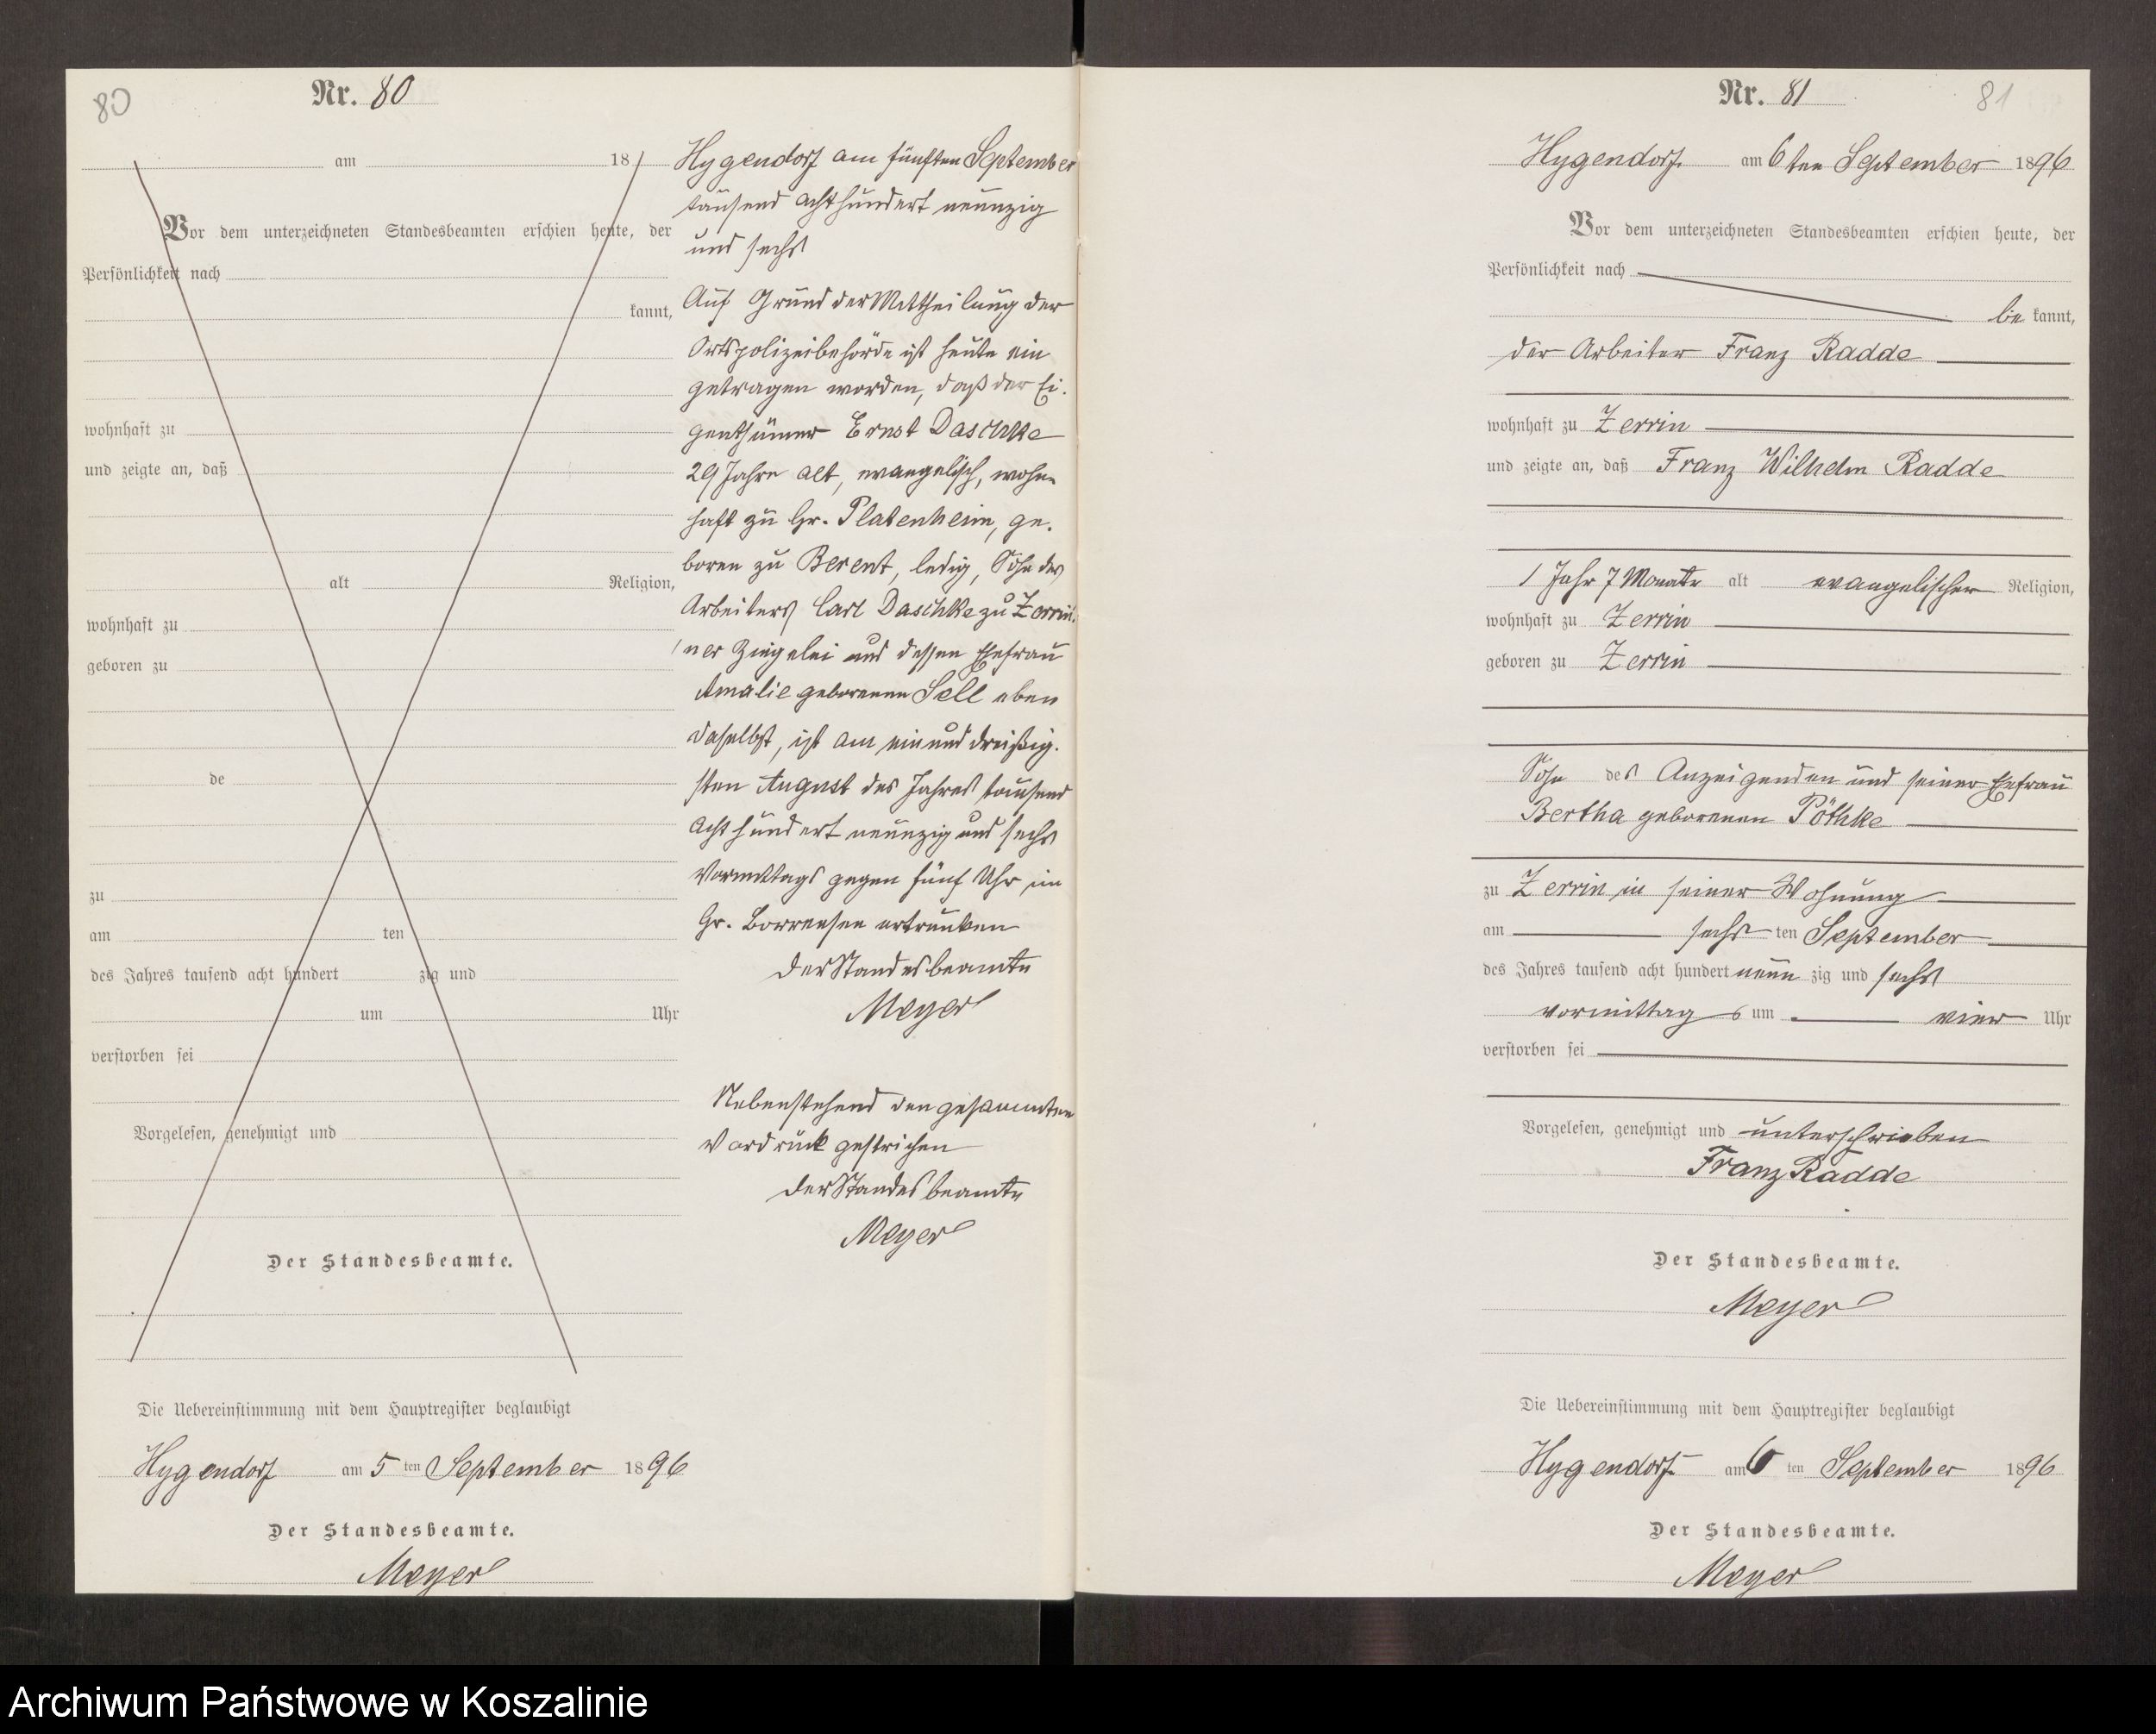 80
Nr. 80
am 18
Vor dem unterzeichneten Standesbeamten erschien heute, der
Persönlichkeit nach
kannt,
wohnhaft zu
und zeigte an, daß
alt Religion,
wohnhaft zu
geboren zu
de
zu
am ten
des Jahres tausend acht hundert zig und
um Uhr
verstorben sei
Vorgelesen, genehmigt und
Der Standesbeamte.
Die Uebereinstimmung mit dem Hauptregister beglaubigt
Hygendorf am 5 ten September 1896
Der Standesbeamte.
Meyer
Hygendorf am fünften September
tausend achthundert neunzig
und sechs
Auf Grund der Mittheilung der
Ortspolizeibehörde ist heute ein
getragen worden, daß der Ei-
genthümer Ernst Daschke
29 Jahre alt, evangelisch, wohn-
haft zu Gr. Platenheim, ge-
boren zu Berent, ledig, Sohn des
Arbeiters Carl Daschke zu Zerrin-
ner Ziegelei und dessen Ehefrau
Amalie geborenen Sell eben
daselbst, ist am ein und dreißig-
sten August des Jahres tausend
acht hundert neunzig und sechs
Vormittags gegen fünf Uhr im
Gr. Borrensee ertrunken
Der Standesbeamte
Meyer
Nebenstehend den gesammten
Vordruck gestrichen
Der Standesbeamte
Meyer
Nr. 81
81
Hygendorf am 6ten September 1896
Vor dem unterzeichneten Standesbeamten erschien heute, der
Persönlichkeit nach
be kannt,
der Arbeiter Franz Radde
wohnhaft zu Zerrin
und zeigte an, daß Franz Wilhelm Radde
1 Jahr 7 Monate alt evangelischer Religion,
wohnhaft zu Zerrin
geboren zu Zerrin
Sohn des Anzeigenden und seiner Ehefrau
Bertha geborenen Pöthke
zu Zerrin in seiner Wohnung
am sechs ten September
des Jahres tausend acht hundert neun zig und sechs
vormittags um vier Uhr
verstorben sei
Vorgelesen, genehmigt und unterschrieben
Franz Radde
Der Standesbeamte.
Meyer
Die Uebereinstimmung mit dem Hauptregister beglaubigt
Hygendorf am 6 ten September 1896
Der Standesbeamte.
Meyer
Archiwum Państwowe w Koszalinie